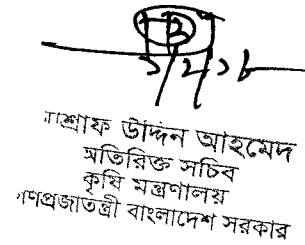 ১/২/১৮
াশ্রাফ উদ্দিন আহমেদ
অতিরিক্ত সচিব
কৃষি মন্ত্রণালয়
গণপ্রজাতন্ত্রী বাংলাদেশ সরকার